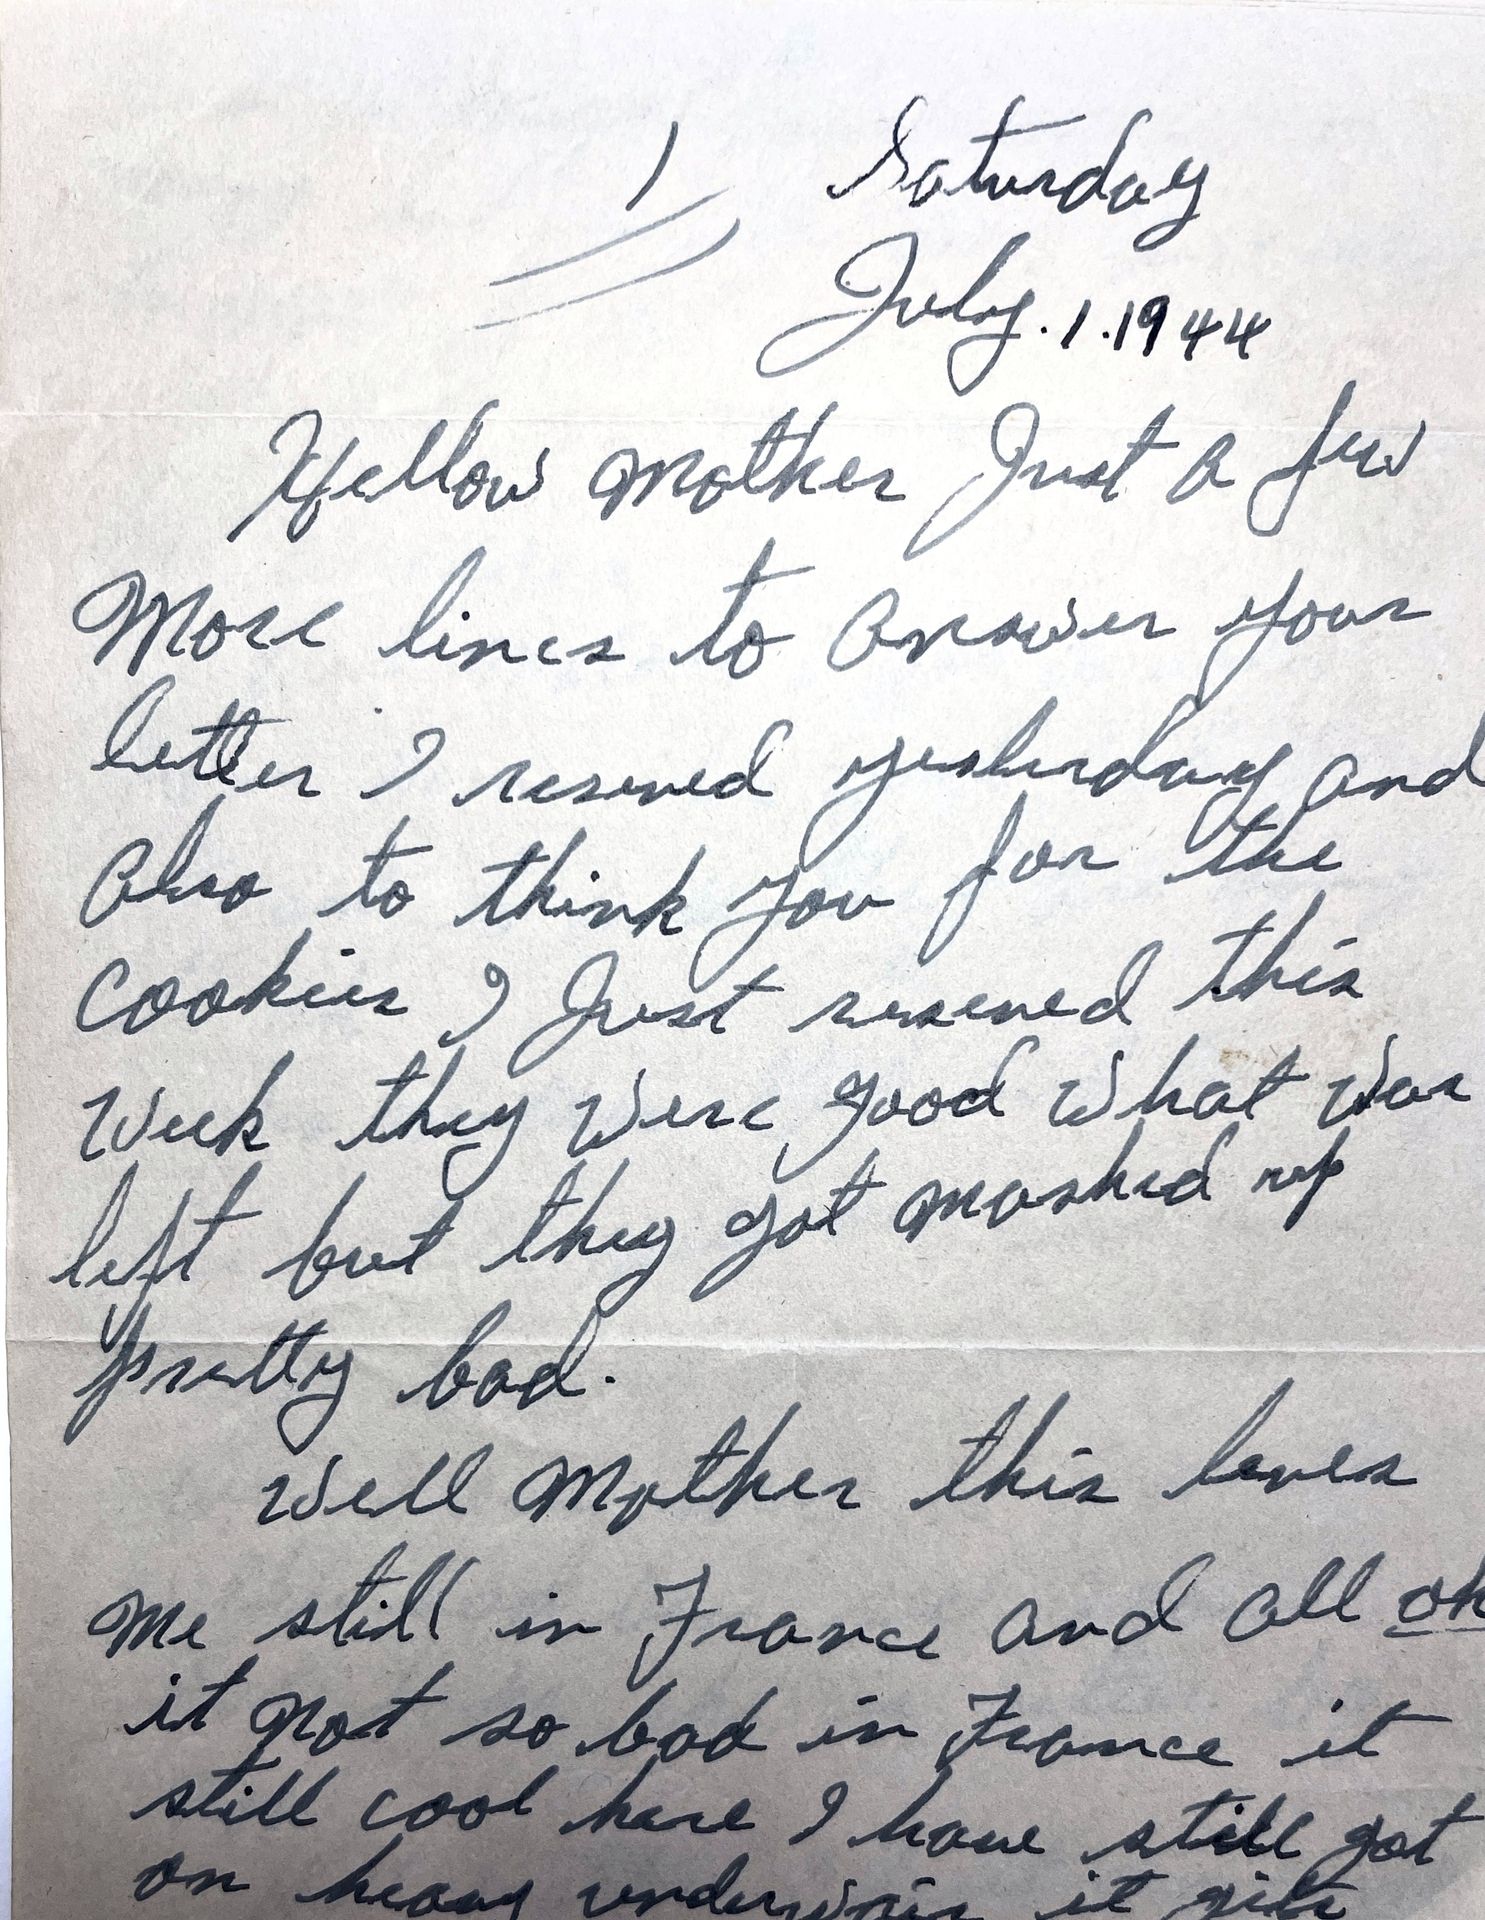 1
Saturday
July. 1. 1944
Hellow Mother Just a few
More lines to answer your
letter I reseved yesterday and
also to think you for the
cookies I Just reseved this
week they were good what was
left but they got mashed up
pretty bad.
Well Mother this leves
me still in France and all ok
it not so bad in France it
still cool hare I have still got
on heavy underwair it gits